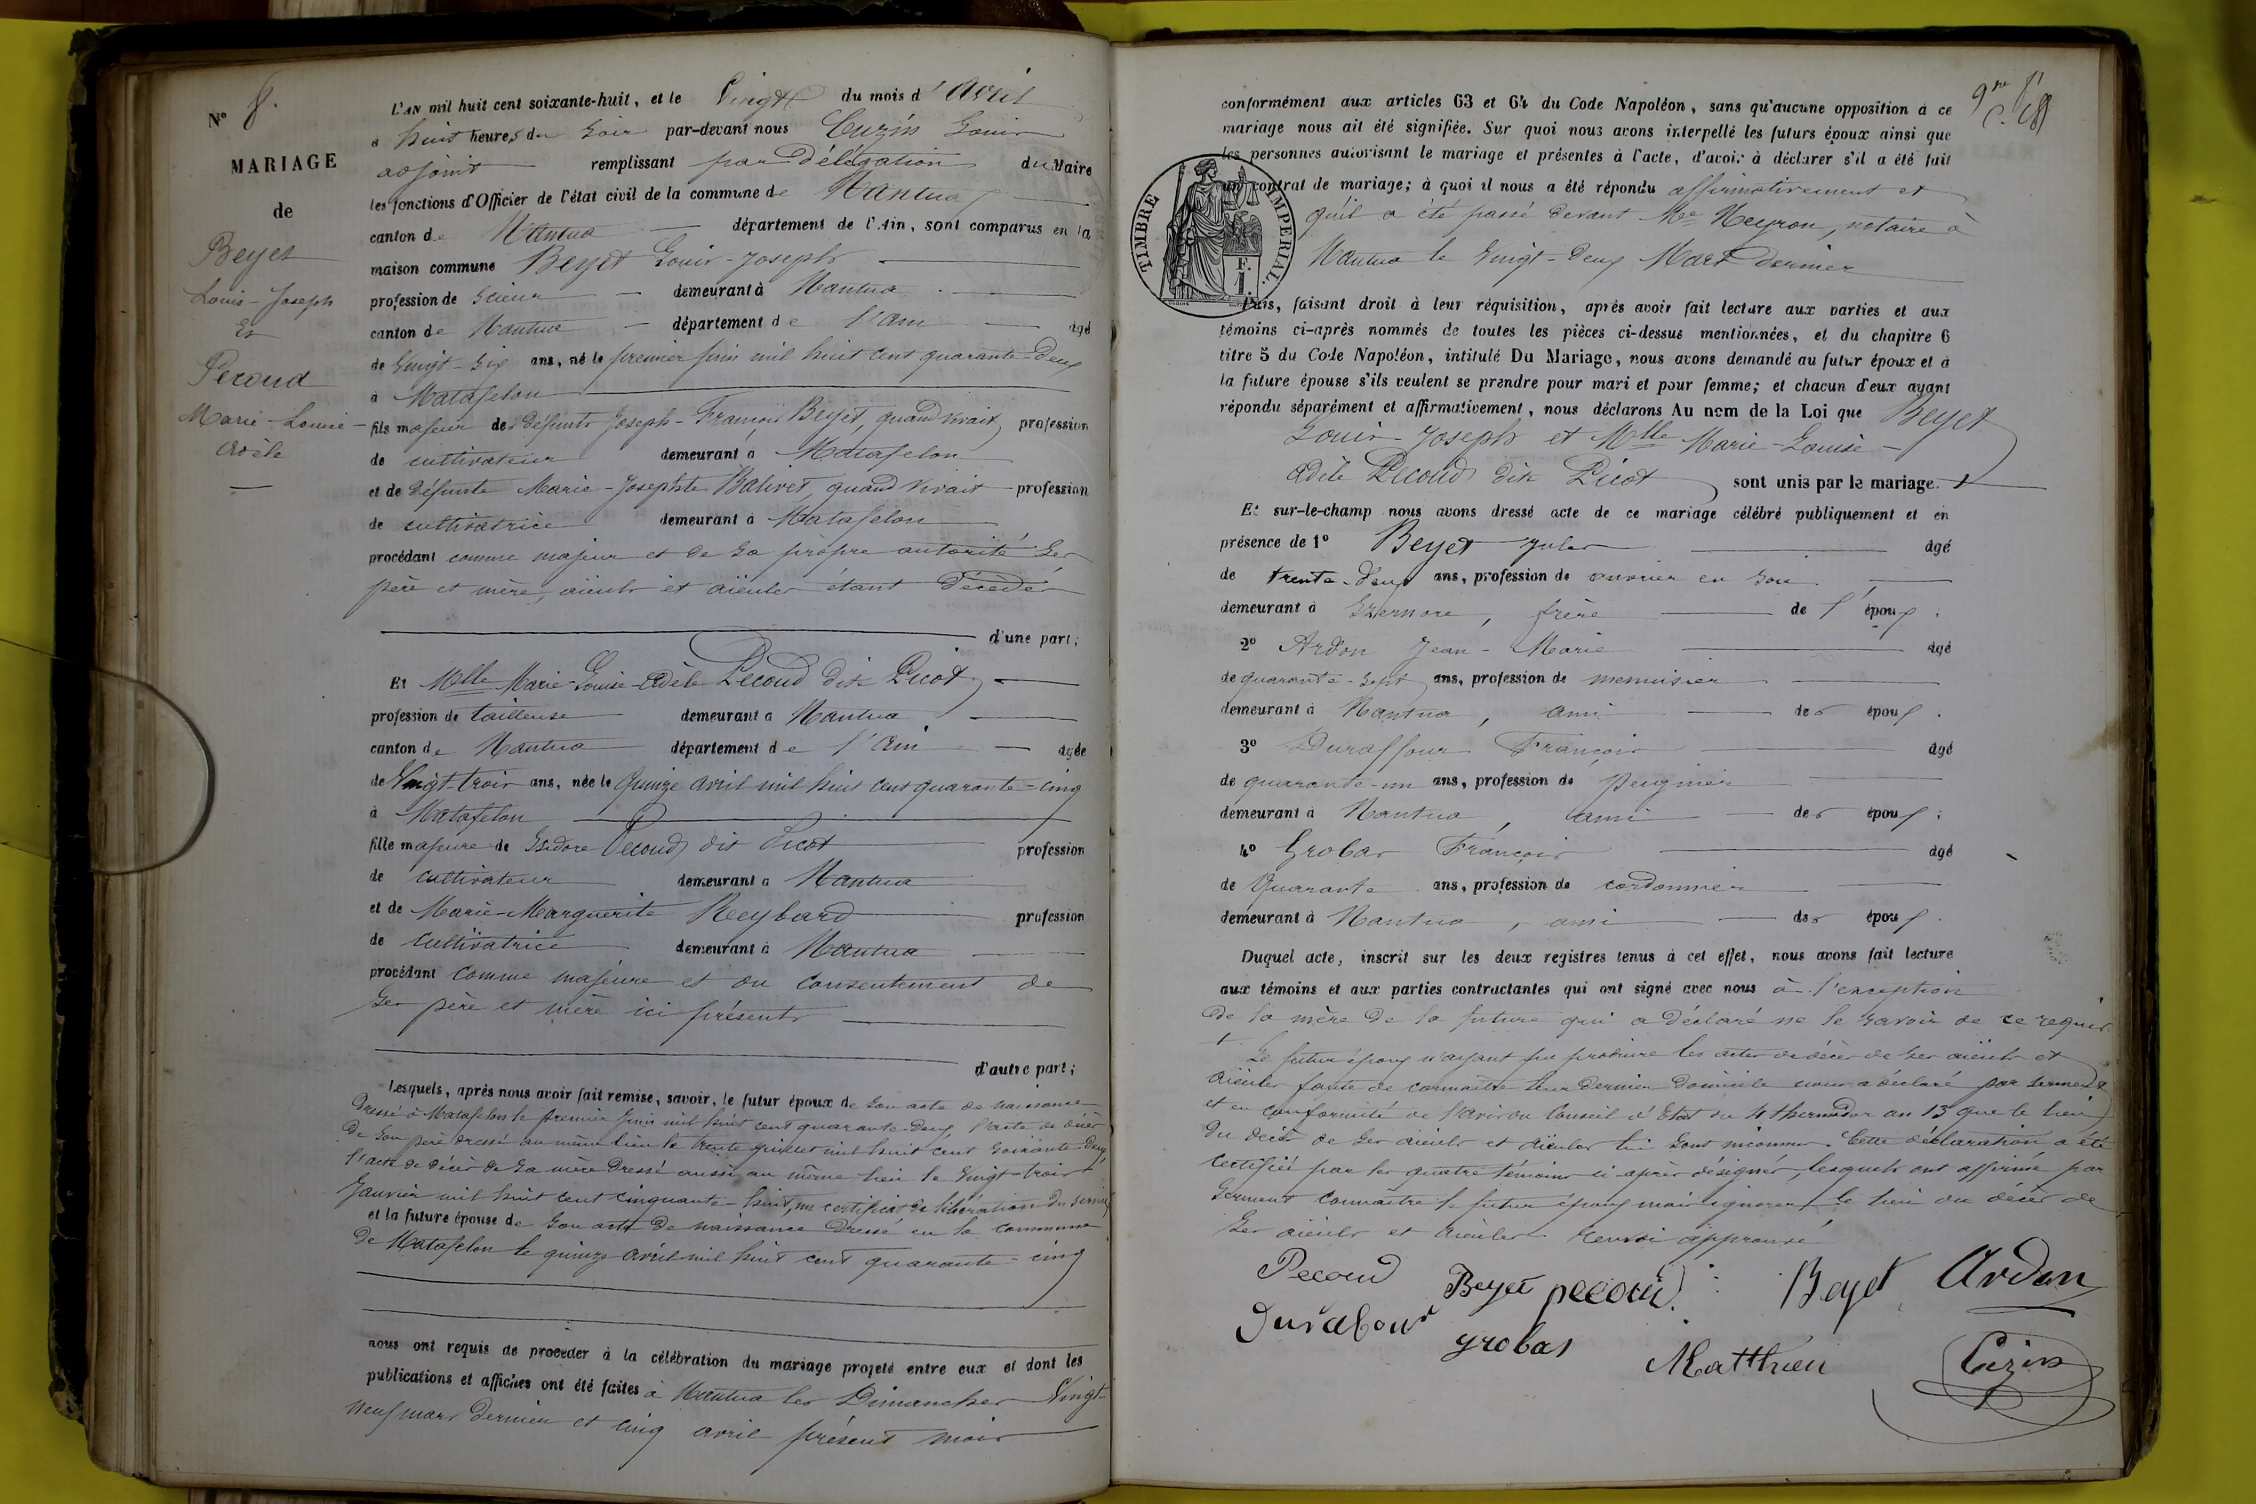 N° 8.
MARIAGE
de
Beyet
Louis-Joseph
Et
Pecoud
Marie-Louise-
Adèle
L'AN mil huit cent soixante-huit, et le Vingt du mois d'Avril
à huit heures du Soir par-devant nous Cuzin Louis
adjoint remplissant par délégation du Maire
les fonctions d'Officier de l'état civil de la commune de Nantua
canton de Nantua département de l'Ain, sont comparus en la
maison commune Beyet Louis-Joseph
profession de Scieur demeurant à Nantua
canton de Nantua département de l'Ain âgé
de Vingt-Six ans, né le premier juin mil huit cent quarante-deux
à Matafelon
fils majeur des défunts Joseph-François Beyet, quand vivait, profession
de cultivateur demeurant à Matafelon
et de défunte Marie-Josephte Balivet, quand vivait profession
de cultivatrice demeurant à Matafelon
procédant comme majeur et de sa propre autorité ses
père et mère, aïeuls et aïeules étant décédés
d'une part;
Et Mlle Marie-Louise-Adèle Pecoud dit Picot
profession de tailleuse demeurant à Nantua
canton de Nantua département de l'Ain âgée
de Vingt-trois ans, née le Quinze avril mil huit cent quarante-cinq
à Matafelon
fille majeure de Isidore Pecoud dit Picot profession
de cultivateur demeurant à Nantua
et de Marie-Marguerite Reybard profession
de cultivatrice demeurant à Nantua
procédant comme majeure et du consentement de
ses père et mère ici présents
d'autre part;
Lesquels, après nous avoir fait remise, savoir, le futur époux de son acte de naissance
dressé à Matafelon le premier juin mil huit cent quarante-deux l'acte de décès
de son père dressé au même lieu le trente juillet mil huit cent soixante-deux
l'acte de décès de sa mère dressé aussi au même lieu le Vingt-trois
Janvier mil huit cent cinquante-huit, un certificat de libération du service
et la future épouse de son acte de naissance dressé en la commune
de Matafelon le quinze avril mil huit cent quarante-cinq
nous ont requis de procéder à la célébration du mariage projeté entre eux et dont les
publications et affiches ont été faites à Nantua les Dimanches Vingt-
neuf mars dernier et cinq avril présent mois
conformément aux articles 63 et 64 du Code Napoléon, sans qu'aucune opposition à ce
mariage nous ait été signifiée. Sur quoi nous avons interpellé les futurs époux ainsi que
les personnes autorisant le mariage et présentes à l'acte, d'avoir à déclarer s'il a été fait
un contrat de mariage; à quoi il nous a été répondu affirmativement et
qu'il a été passé devant Me Neyron, notaire à
Nantua le Vingt-deux Mars dernier
TIMBRE IMPERIAL.
F.
1.
Puis, faisant droit à leur réquisition, après avoir fait lecture aux parties et aux
témoins ci-après nommés de toutes les pièces ci-dessus mentionnées, et du chapitre 6
titre 5 du Code Napoléon, intitulé Du Mariage, nous avons demandé au futur époux et à
la future épouse s'ils veulent se prendre pour mari et pour femme; et chacun d'eux ayant
répondu séparément et affirmativement, nous déclarons Au nom de la Loi que Beyet
Louis-Joseph et Mlle Marie-Louise-
Adèle Pecoud dit Picot sont unis par le mariage.
Et sur-le-champ nous avons dressé acte de ce mariage célébré publiquement et en
présence de 1° Beyet Jules âgé
de trente-deux ans, profession de ouvrier en soie
demeurant à Izernore, frère de l'époux.
2° Ardon Jean-Marie âgé
de quarante-sept ans, profession de menuisier
demeurant à Nantua, ami des époux.
3° Duraffour François âgé
de quarante-un ans, profession de peignier
demeurant à Nantua, ami des époux;
4° Grobas François âgé
de Quarante ans, profession de cordonnier
demeurant à Nantua, ami des époux.
Duquel acte, inscrit sur les deux registres tenus à cet effet, nous avons fait lecture
aux témoins et aux parties contractantes qui ont signé avec nous à l'exception
de la mère de la future qui a déclaré ne le savoir de ce requis
+ Le futur époux n'ayant pu produire les actes de décès de ses aïeuls et
aïeules faute de connaître leur dernier domicile nous a déclaré par serment
et en conformité de l'avis du Conseil d'Etat du 4 thermidor an 13 que le lieu
du décès de ses aïeuls et aïeules lui sont inconnus. Cette déclaration a été
certifiée par les quatre témoins ci-après désignés, lesquels ont affirmé par
serment connaître le futur époux mais ignorer le lieu du décès de
ses aïeuls et aïeules. renvoi approuvé
Pecoud Beyet pecoud Beyet Ardon
Durafour grobas Matthieu Cuzin